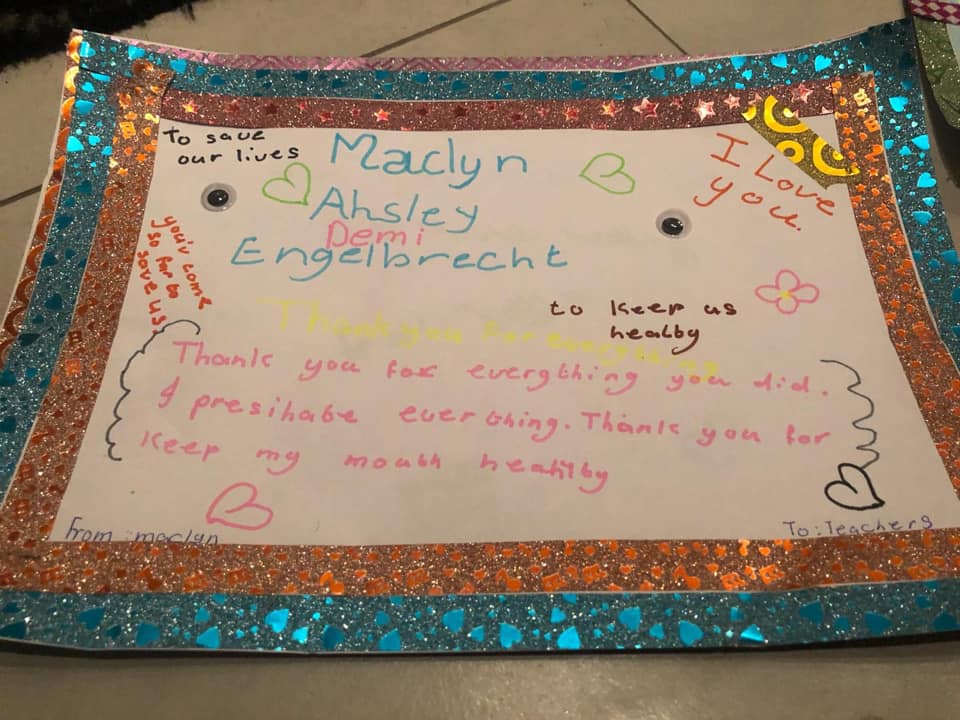 to save
our lives
Maclyn
Ahsley
Demi
Engelbrecht
I Love
you.
you'v come
so far to
save us
to keep us
healby
Thank you for everything
Thank you for everything you did.
I presihabe ever thing. Thank you for
keep my mouth healtby
From : maclyn
To : Teachers